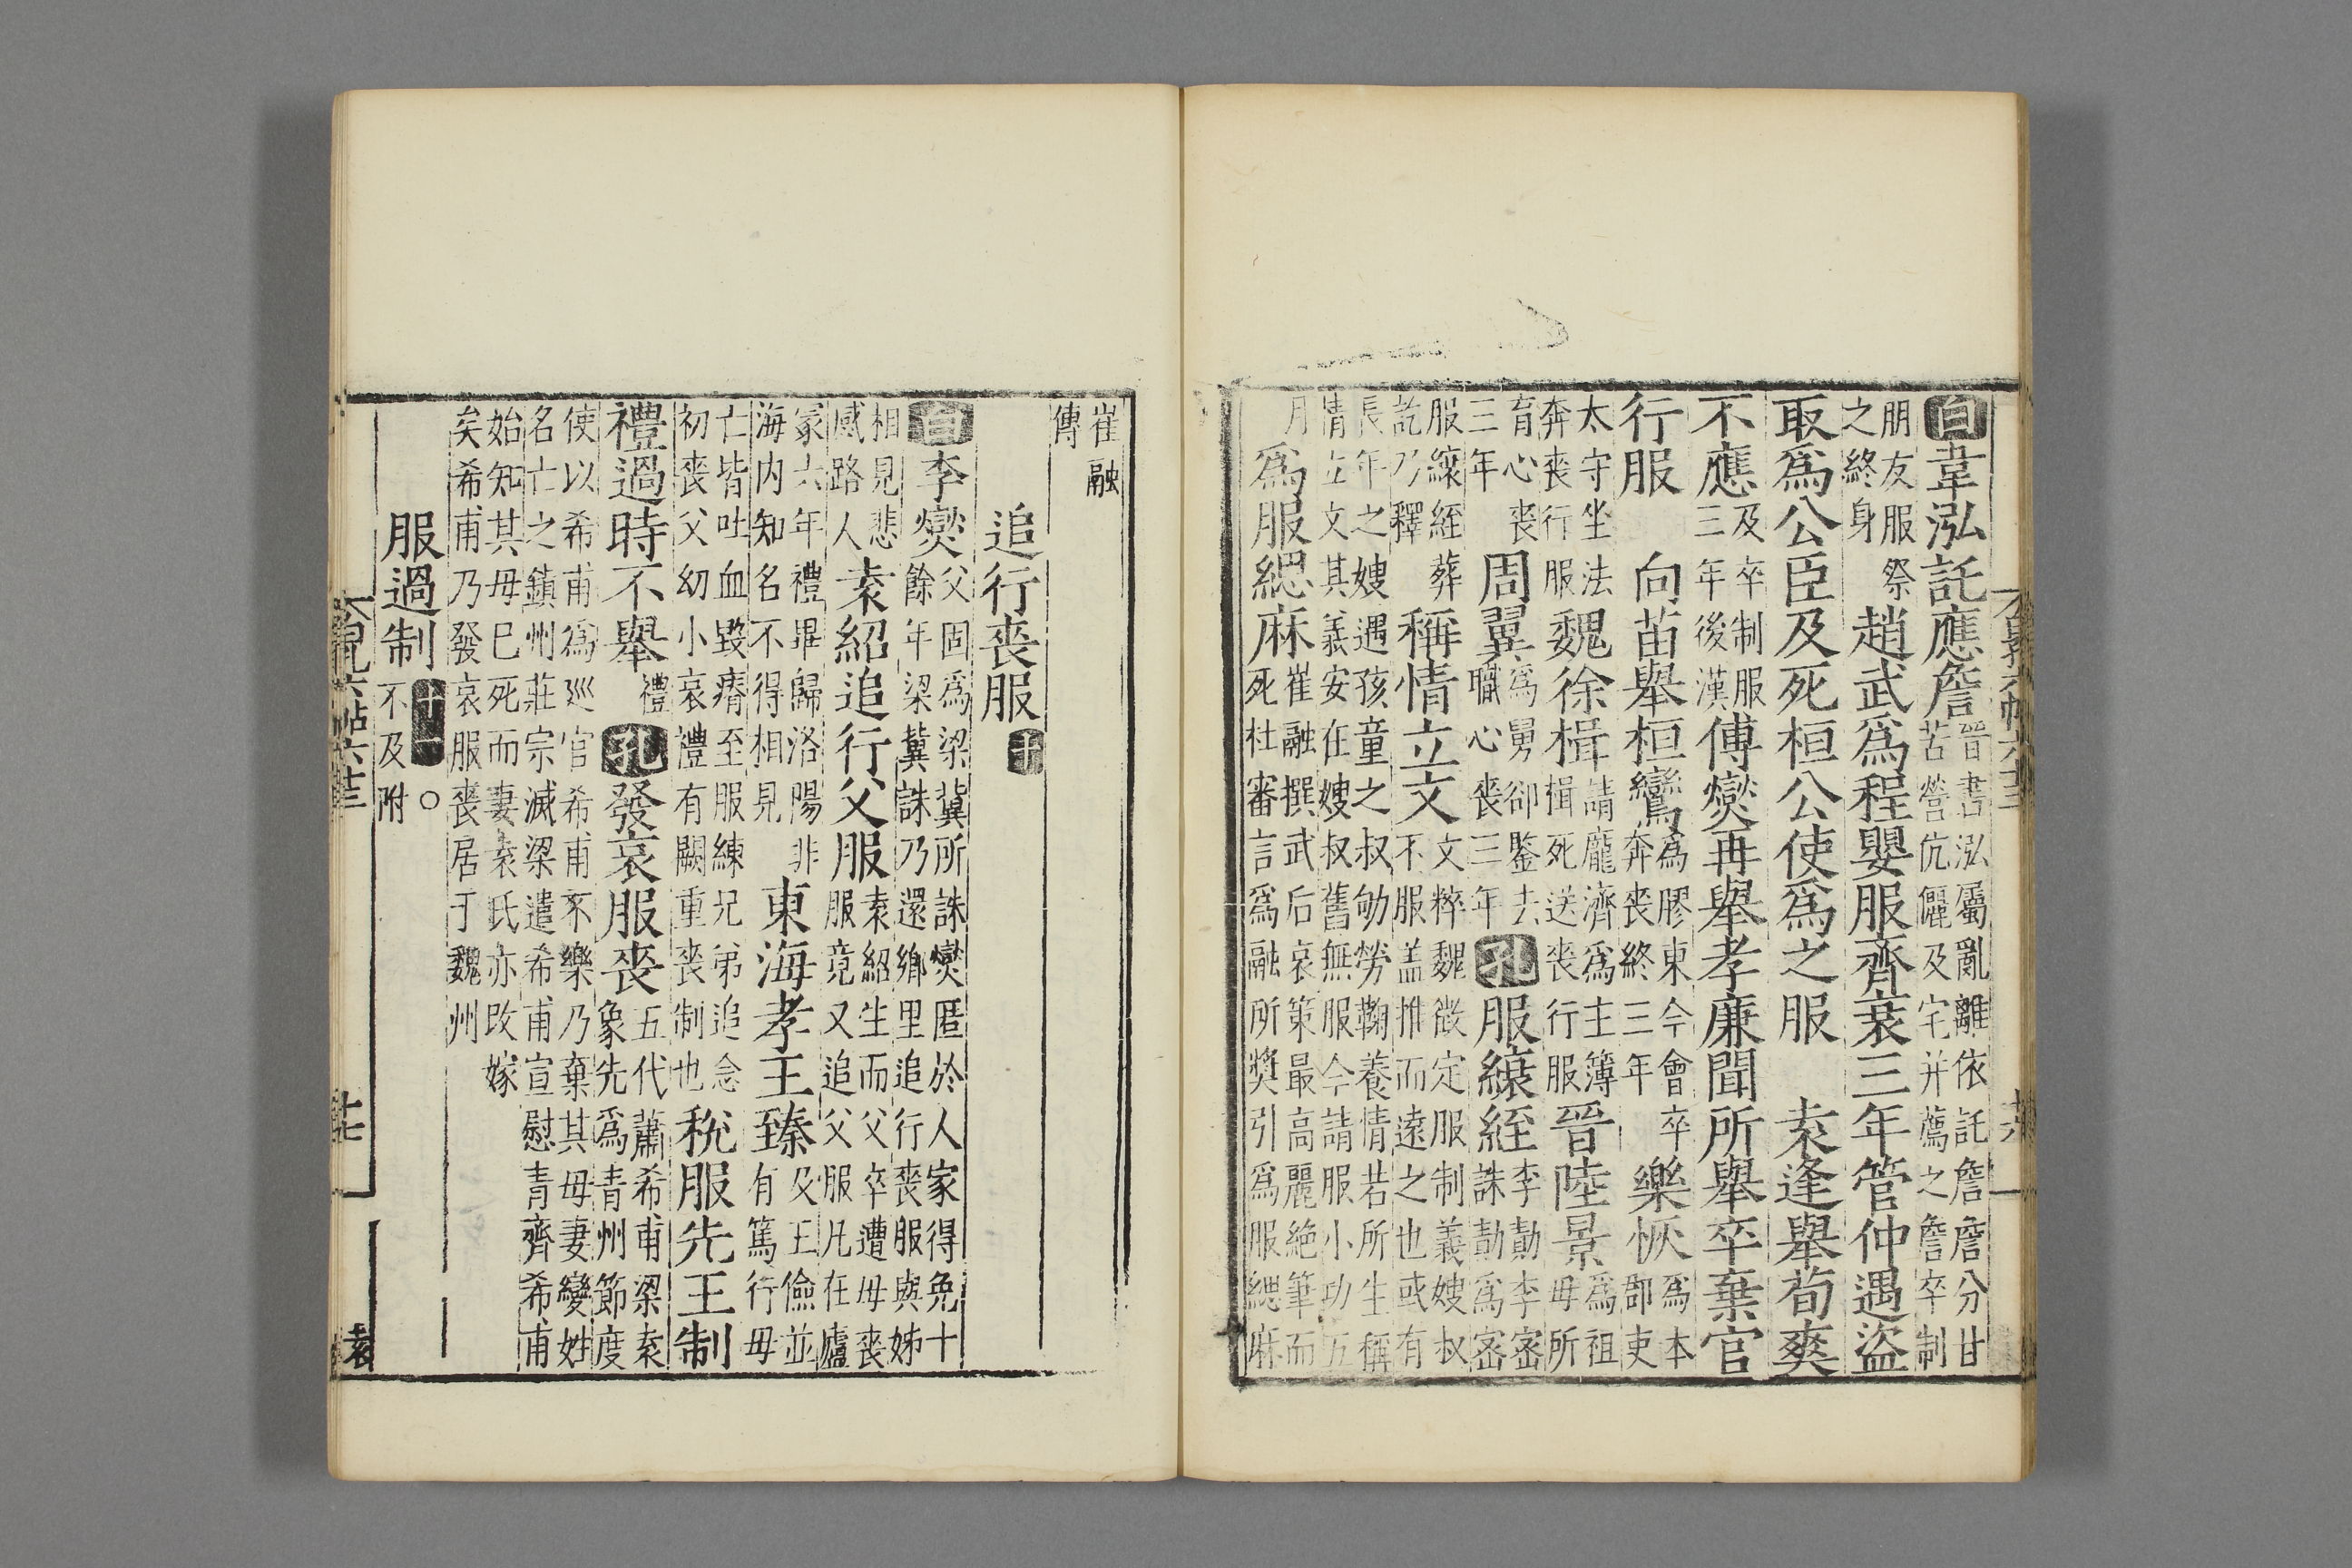 白韋泓託應詹晉書泓屬亂離依託詹詹分甘苦營伉儷及宅并薦之詹卒制
朋友服祭之終身趙武爲程嬰服齊衰三年管仲遇盜
取爲公臣及死桓公使爲之服 袁逢舉荀爽
不應及卒制服三年後漢傅燮再舉孝廉聞所舉卒棄官
行服 向苗舉桓鸞爲膠東今會卒奔喪終三年樂恢爲本郡吏
太守坐法奔喪行服魏徐楫請龐濟爲主簿楫死送喪行服晉陸景爲祖母所
育心喪三年周翼爲舅郤鑒去職心喪三年孔服縗絰李勣李密誅勣爲密
服縗絰葬訖乃釋稱情立文文粹魏徵定服制義嫂叔不服盖推而遠之也或有
長年之嫂遇孩童之叔劬勞鞠養情若所生稱情立文其義安在嫂叔舊無服今請服小功五
月爲服緦麻崔融撰武后哀策最高麗絶筆而死杜審言爲融所奬引爲服緦麻
崔融傳
追行喪服十
白李燮父固爲梁冀所誅燮匿於人家得免十餘年梁冀誅乃還鄉里追行喪服與姊
相見悲感路人袁紹追行父服袁紹生而父卒遭母喪服竟又追父服凡在廬
冢六年禮畢歸洛陽非海内知名不得相見東海孝王臻及王儉並有篤行母
亡皆吐血毀瘠至服練兄弟追念初喪父幼小哀禮有闕重喪制也税服先王制
禮過時不舉禮孔發哀服喪五代蕭希甫梁袁象先爲青州節度
使以希甫爲廵官希甫不樂乃棄其母妻變姓名亡之鎮州莊宗滅梁遣希甫宣慰青齊希甫
始知其母巳死而妻袁氏亦改嫁矣希甫乃發哀服喪居于魏州
服過制十一○不及附
廿七
袁